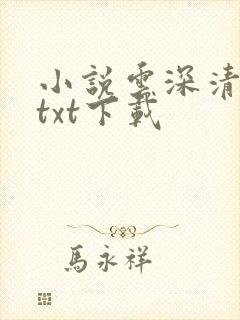 小說雲深清
txt下載
馬永祥